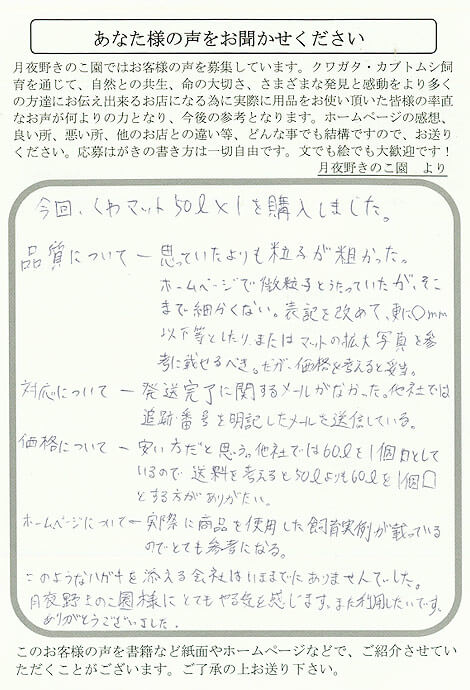 あなた様の声をお聞かせください
月夜野きのこ園ではお客様の声を募集しています。クワガタ・カブトムシ飼
育を通じて、自然との共生、命の大切さ、さまざまな発見と感動をより多く
の方達にお伝え出来るお店になる為に実際に用品をお使い頂いた皆様の率直
なお声が何よりの力となり、今後の参考となります。ホームページの感想、
良い所、悪い所、他のお店との違い等、どんな事でも結構ですので、お送り
ください。応募はがきの書き方は一切自由です。文でも絵でも大歓迎です！
月夜野きのこ園 より
今回、くわマット50ℓ×1を購入しました。
品質について ー 思っていたよりも粒子が粗かった。
ホームページで微粒子とうたっていたが、そこ
まで細かくない。表記を改めて、更に○mm
以下等としたり、またはマットの拡大写真を参
考に載せるべき。だが、価格を考えると妥当。
対応について ー 発送完了に関するメールがなかった。他社では
追跡番号を明記したメールを送信している。
価格について ー 安い方だと思う。他社では60ℓを1個口として
いるので 送料を考えると50ℓよりも60ℓを1個口
とする方がありがたい。
ホームページについてー 実際に商品を使用した飼育実例が載っている
のでとても参考になる。
このようなハガキを添える会社はいままでにありませんでした。
月夜野きのこ園様にとてもやる気を感じます。また利用したいです。
ありがとうございました。
このお客様の声を書籍など紙面やホームページなどで、ご紹介させてい
ただくことがございます。ご了承の上お送り下さい。